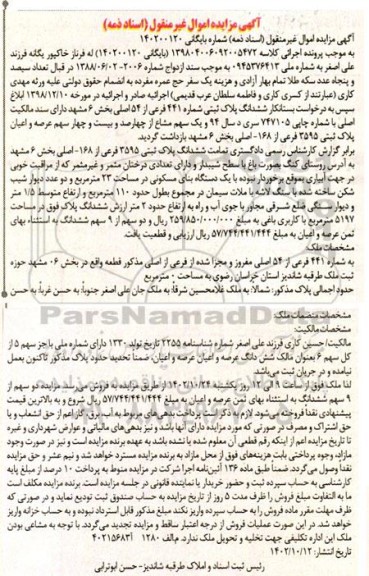 آگهی مزایده اموال غیرمنقول (اسناد ذمه)
آگهی مزایده اموال غیرمنقول (اسناد ذمه) شماره بایگانی ۱۴۰۲۰۰۱۲۰
به موجب پرونده اجرائی کلاسه ۱۳۹۸۰۴۰۰۶۰۹۲۰۰۵۴۷۲ (بایگانی ۱۴۰۲۰۰۱۲۰) له فرناز خاکپور یگانه فرزند
علی اصغر به شماره ملی ۰۹۴۵۳۷۶۴۱۳ به موجب سند ازدواج شماره ۲۰۰۶-۱۳۸۸/۰۶/۰۳ در قبال تعداد سیصد
و پنجاه عدد سکه طلا تمام بهار آزادی و هزینه یک سفر حج عمره مفرده به انضمام حقوق دولتی علیه ورثه مهدی
کاری (عبارتند از کسری کاری و فاطمه سلطان عرب قدیمی) اجرائیه صادر و اجرائیه در مورخه ۱۳۹۸/۱۲/۱۰ ابلاغ
سپس به درخواست بستانکار ششدانگ پلاک ثبتی شماره ۴۴۱ فرعی از ۵۴ اصلی بخش ۶ مشهد دارای سند مالکیت
اصلی با شماره چاپی ۷۴۷۱۰۵ سری د سال ۹۴ و یک سهم مشاع از چهارصد و بیست و چهار سهم عرصه و اعیان
پلاک ثبتی ۳۵۹۵ فرعی از ۱۶۸-اصلی بخش ۶ مشهد بازداشت گردید.
برابر گزارش کارشناس رسمی دادگستری تمامت ششدانگ پلاک ثبتی ۳۵۹۵ فرعی از ۱۶۸-اصلی بخش ۶ مشهد
به آدرس روستای کنگ بصورت باغی با سطح شیبدار و دارای تعدادی درختان مثمر و غیرمثمر که از مراقبت خوبی
در جهت آبیاری بموقع برخوردار نبوده با یک دستگاه بنای مسکونی در مساحت ۲۳ مترمربع و دو عدد دیوار شیب
شکن ساخته شده با سنگ لاشه با ملات سیمان در مجموع بطول حدود ۱۱۰ مترمربع و ارتفاع متوسط ۱/۵ متر
و دیوار سنگی ضلع شرقی مجاور با جوی آب و راه به ارتفاع حدود ۲ متر ارزش ششدانگ پلاک فوق در مساحت
۵۱۹۷ مترمربع با کاربری باغی به مبلغ ۲۵۹/۸۵۰/۰۰۰/۰۰۰ ریال و دو سهم از ۹ سهم ششدانگ به استثناء بهای
ثمن عرصه و اعیان به مبلغ ۵۷/۷۴۴/۴۴۱/۴۴۴ ریال ارزیابی و قطعیت یافت.
مشخصات ملک:
به شماره ۴۴۱ فرعی از ۵۴ اصلی مفروز و مجزا شده از فرعی از اصلی مذکور قطعه واقع در بخش ۰۶ مشهد حوزه
ثبت ملک طرقبه شاندیز استان خراسان رضوی به مساحت ۰ مترمربع
حدود اجمالی پلاک مذکور: شمالا: به ملک غلامحسین شرقاً: به ملک جان علی اصغر جنوباً: به حسن غرباً: به حسن
مشخصات منضمات ملک:
مشخصات مالکیت:
مالکیت/حسین کاری فرزند علی اصغر شماره شناسنامه ۲۲۵۵ تاریخ تولد ۱۳۳۰ دارای شماره ملی با جز سهم ۵ از
کل سهم ۶ بعنوان مالک شش دانگ عرصه و اعیان عرصه و اعیان، ضمنا تحدید حدود پلاک مذکور تاکنون بعمل
نیامده و در جریان ثبت می‌باشد.
لذا ملک فوق از ساعت ۹ الی ۱۲ روز یکشنبه ۱۴۰۲/۱۰/۲۴ از طریق مزایده به فروش می‌رسد مزایده دو سهم از
۹ سهم ششدانگ به استثناء بهای ثمن عرصه و اعیان به مبلغ ۵۷/۷۴۴/۴۴۱/۴۴۴ ریال شروع و به بالاترین قیمت
پیشنهادی نقدا فروخته می‌شود. لازم به ذکر است پرداخت بدهی‌های مربوط به آب، برق، گاز اعم از حق انشعاب و یا
حق اشتراک و مصرف در صورتی که مورد مزایده دارای آنها باشد و نیز بدهی‌های مالیاتی و عوارض شهرداری و غیره
تا تاریخ مزایده اعم از اینکه رقم قطعی آن معلوم شده یا نشده باشد به عهده برنده مزایده است و نیز در صورت وجود
مازاد، وجوه پرداختی بابت هزینه‌های فوق از محل مازاد به برنده مزایده مسترد خواهد شد و نیم عشر و حق مزایده
نقدا وصول می‌گردد. ضمناً طبق ماده ۱۳۶ آئین‌نامه اجرا شرکت در مزایده منوط به پرداخت ۱۰ درصد از مبلغ پایه
کارشناسی به حساب سپرده ثبت و حضور خریدار یا نماینده قانونی در جلسه مزایده است. برنده مزایده مکلف است
ما به التفاوت مبلغ فروش را ظرف مدت ۵ روز از تاریخ مزایده به حساب صندوق ثبت تودیع نماید و در صورتی که
ظرف مهلت مقرر مانده فروش را به حساب سپرده واریز نکند مبلغ مذکور قابل استرداد نبوده و به حساب خزانه واریز
خواهد شد. در این صورت عملیات فروش از درجه اعتبار ساقط و مزایده تجدید می‌گردد. با توجه به مشاعی بودن
ملک این اداره تکلیفی جهت تخلیه و تحویل ملک ندارد. م‌الف ۱۲۸۰ آ۴۰۲۱۵۶۸۳
تاریخ انتشار: ۱۴۰۲/۱۰/۱۲
رئیس ثبت اسناد و املاک طرقبه شاندیز- حسن ابوترابی
ParsNamadData